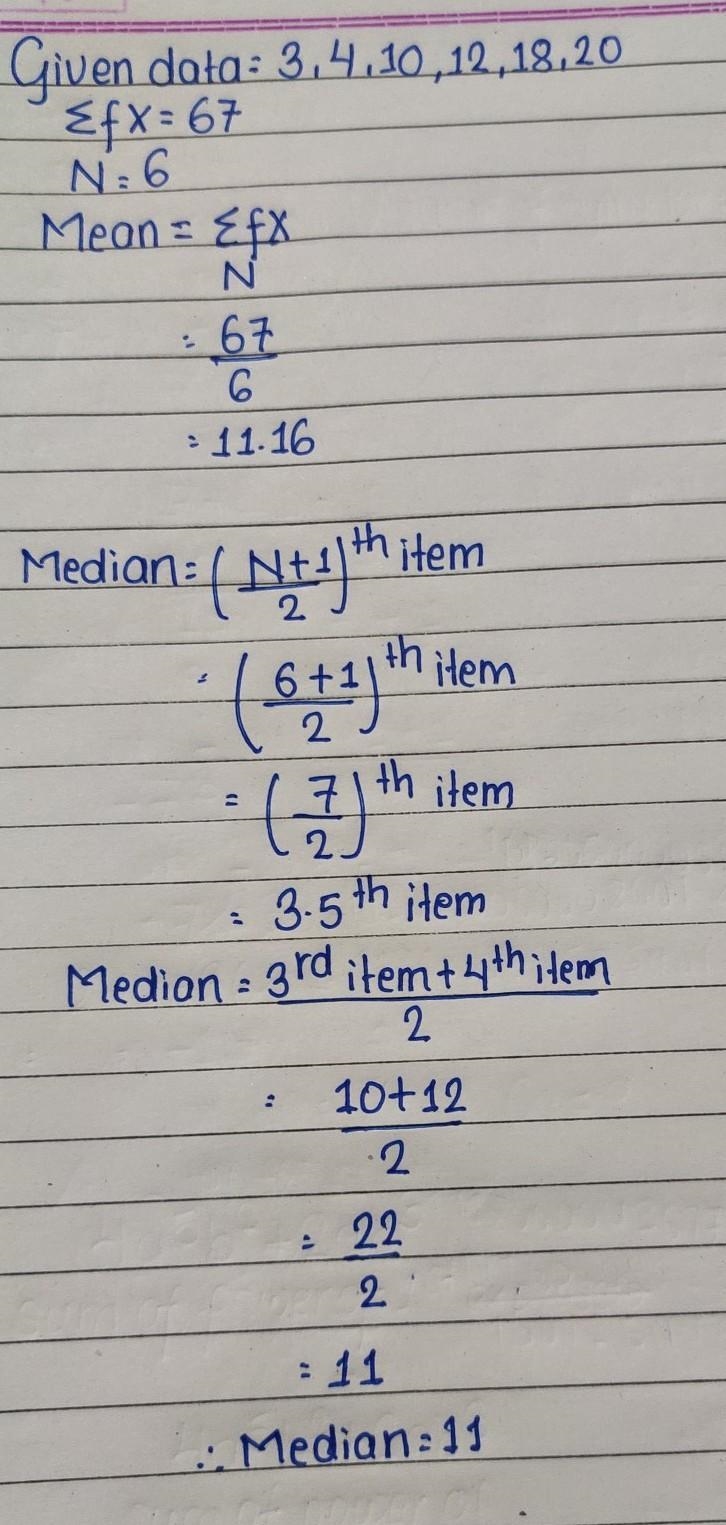 Given data = 3, 4, 10, 12, 18, 20
Σfx = 67
N = 6
Mean = Σfx
N
= 67
6
= 11.16
Median = (N+1
2)th item
= (6+1
2)th item
= (7
2)th item
= 3.5th item
Median = 3rd item + 4th item
2
= 10+12
2
= 22
2
= 11
∴ Median = 11